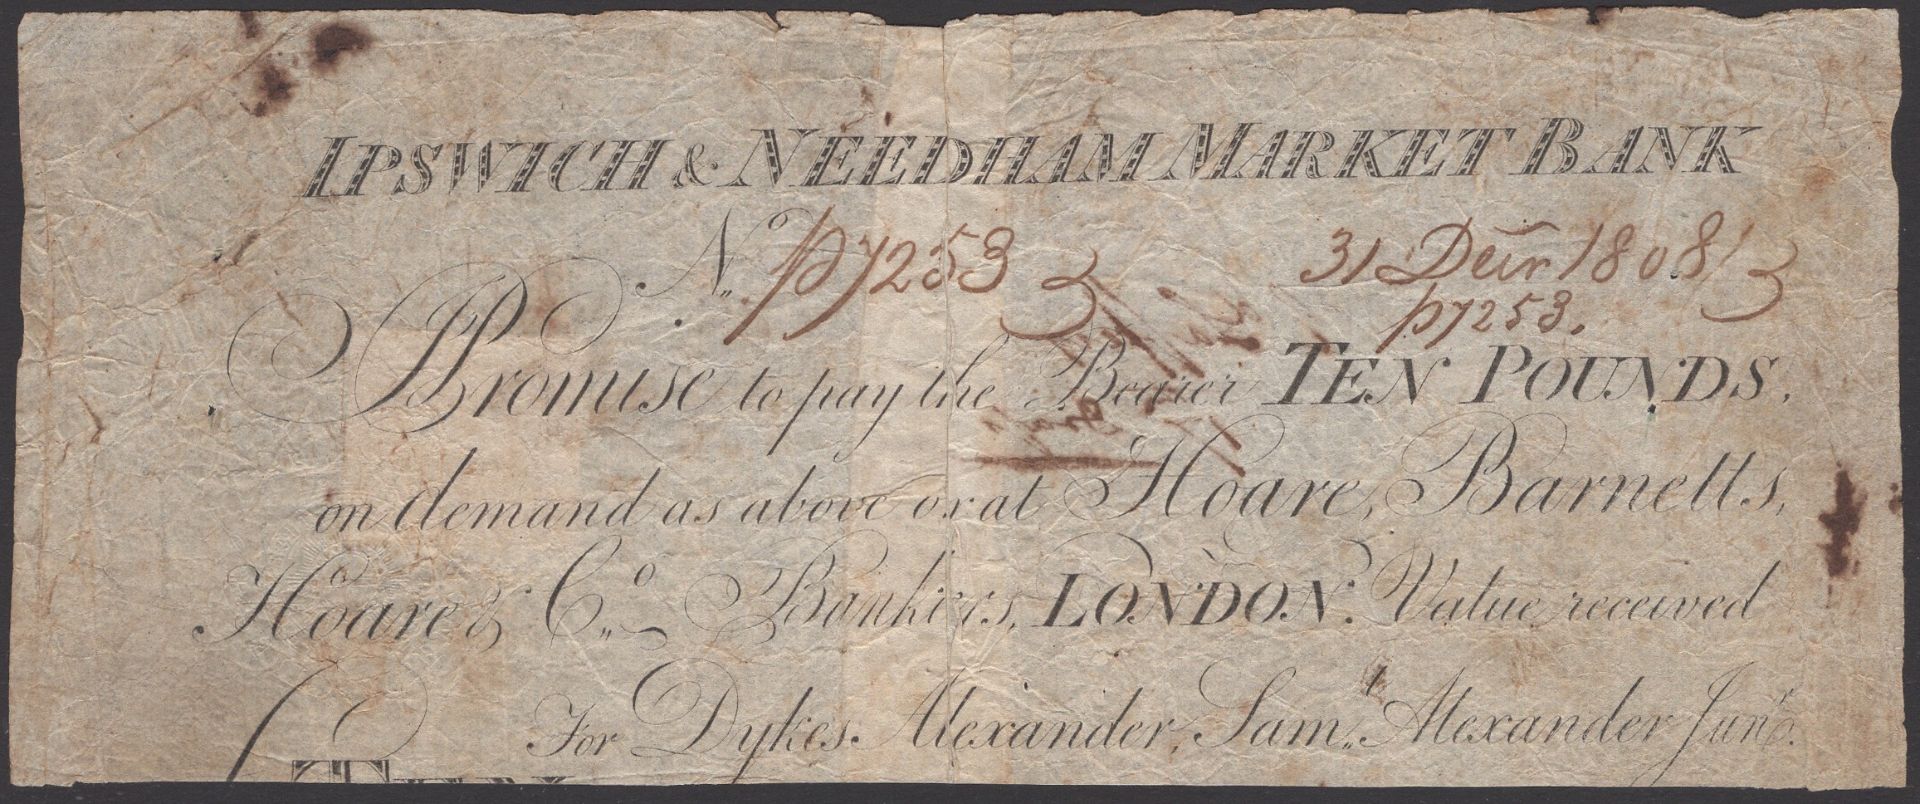 IPSWICH & NEEDHAM MARKET BANK
No. p7253 31 Decr 1808
p7253.
I Promise to pay the Bearer TEN POUNDS,
on demand as above or at Hoare, Barnetts,
Hoare & Co. Bankers, LONDON. Value received
For Dykes Alexander, Saml. Alexander Junr.
TEN